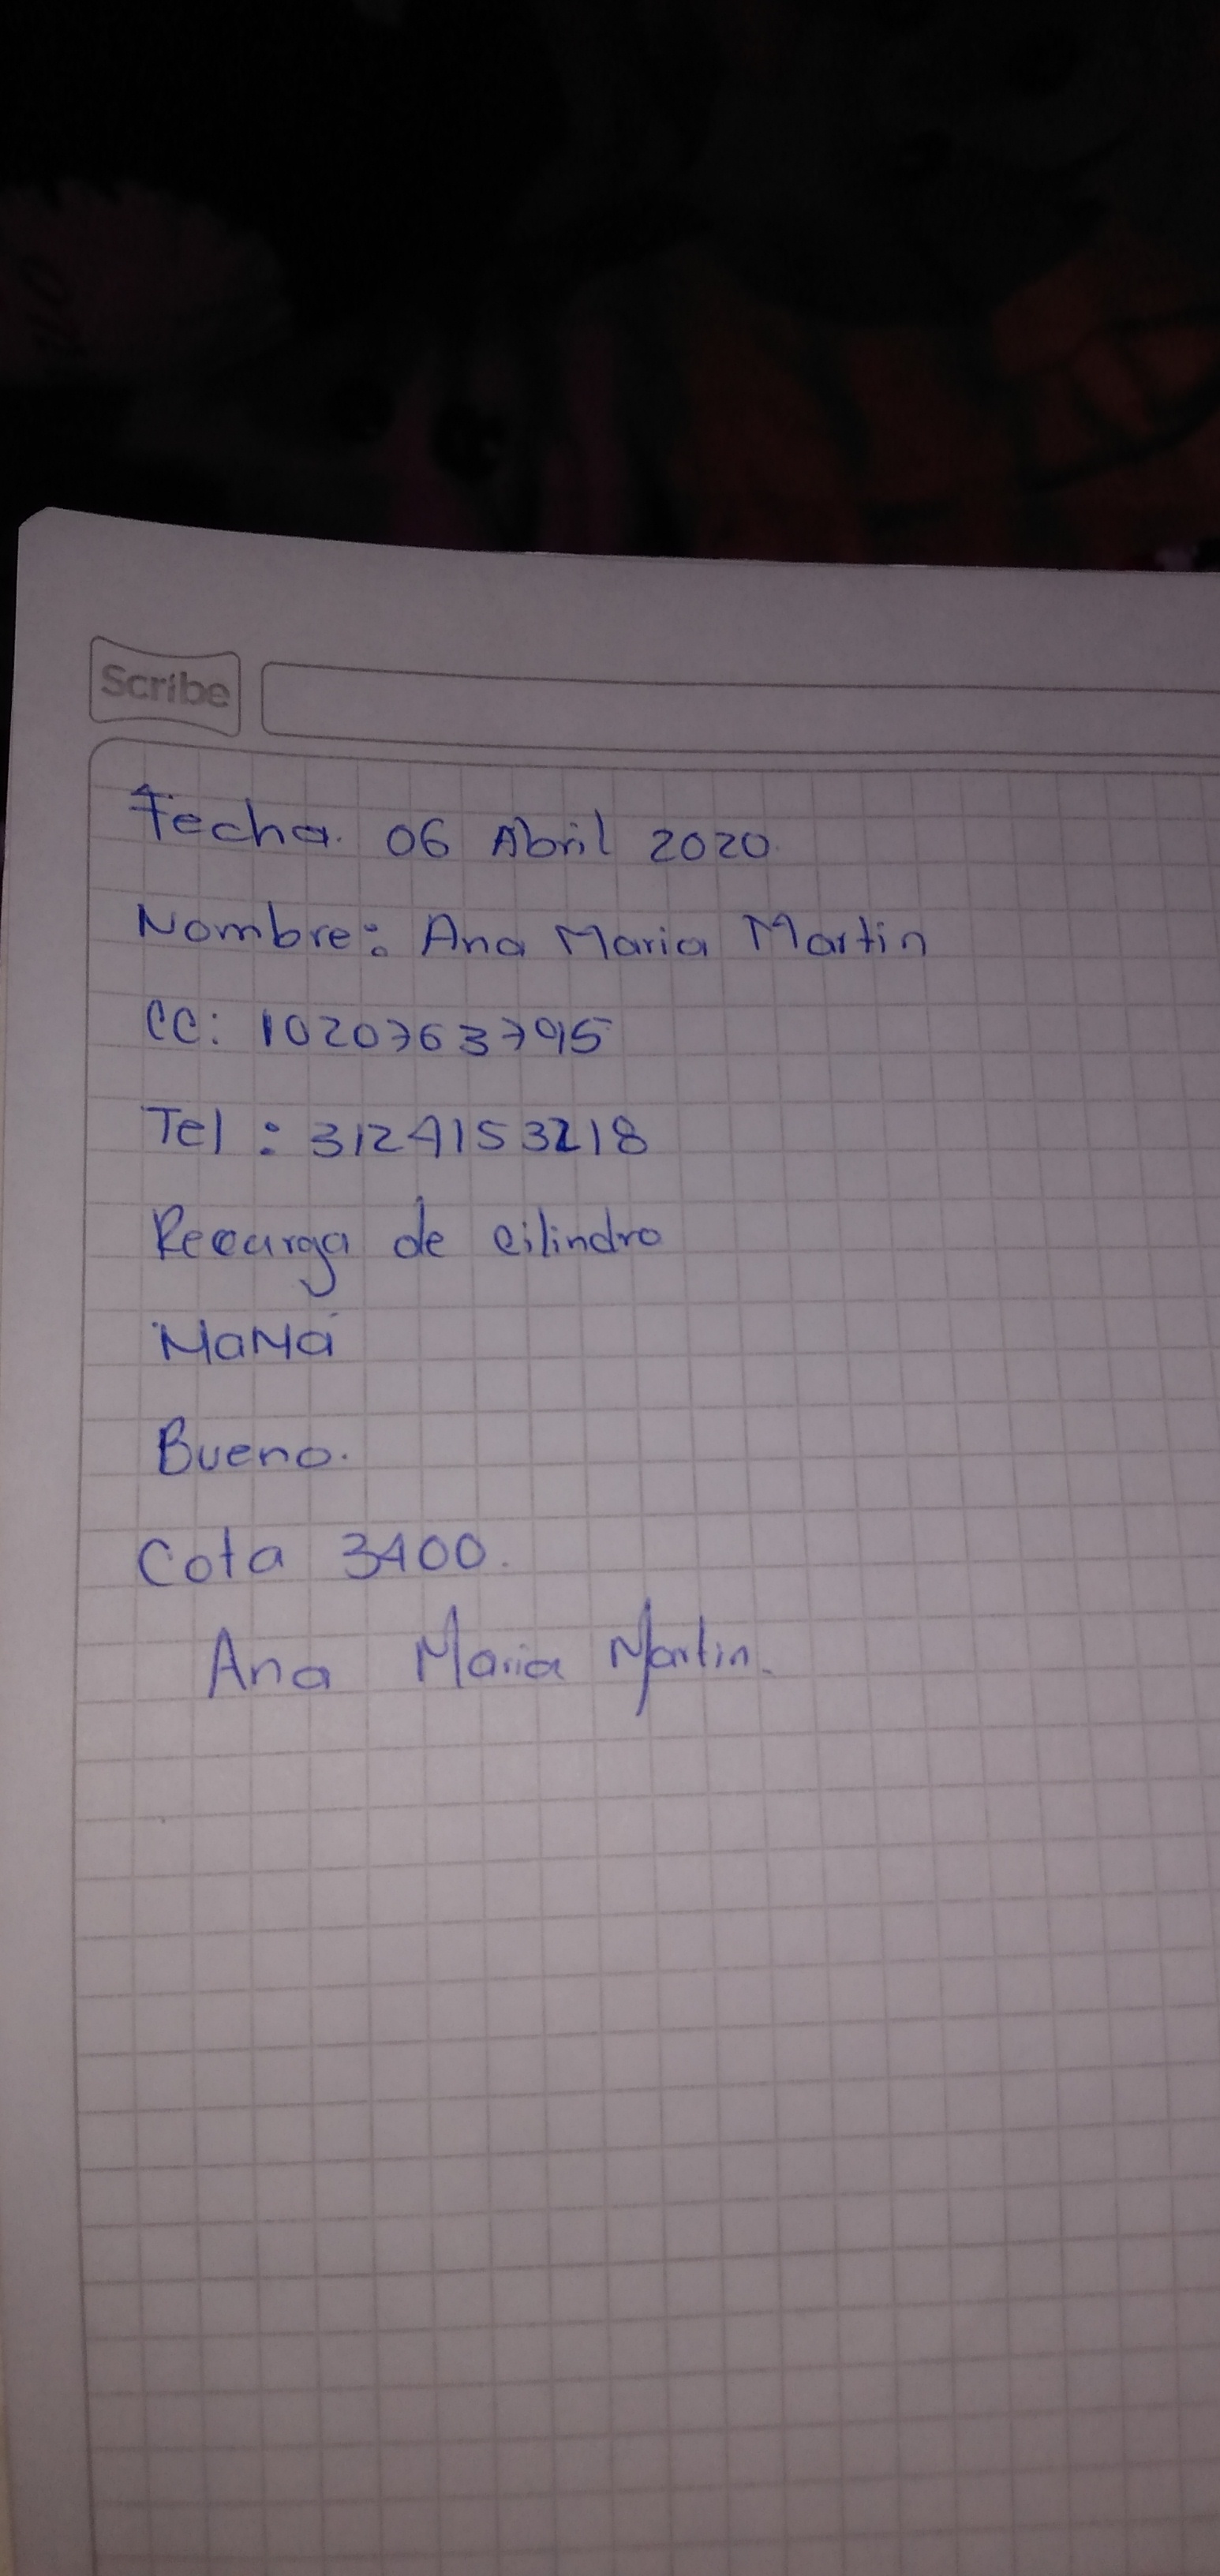 Scribe
Fecha. 06 Abril 2020.
Nombre: Ana Maria Martin
CC: 1020763795
Tel : 3124153218
Recarga de cilindro
MaMá
Bueno.
Cota 3400.
Ana Maria Martin.